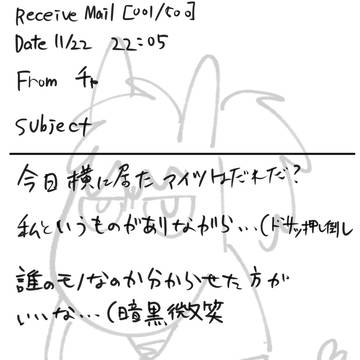 Receive Mail [001/500]
Date 11/22 22:05
From チャ
Subject
今日横に居たアイツはだれだ?
私というものがありながら…(ドサッ押し倒し
誰のモノなのか分からせた方が
いいな…(暗黒微笑